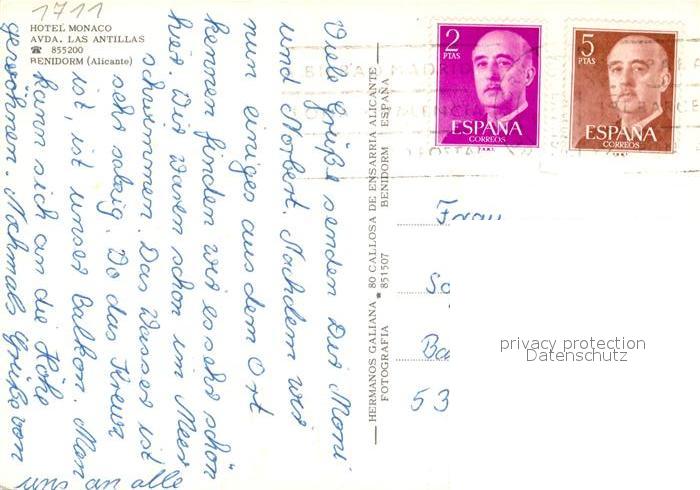 1711
HOTEL MONACO
AVDA. LAS ANTILLAS
☎ 855200
BENIDORM (Alicante)
Viele Grüße senden Dir Moni
und Norbert. Nachdem wir
nun einiges aus dem Ort
kennen finden wir es sehr schön
hier. Wir waren schon im Meer
schwimmen. Das Wasser ist
sehr salzig. Wo das Kreuz
ist, ist unser Balkon. Man
kann sich an die Höhe
gewöhnen. Nochmals Grüße von
uns an alle
HERMANOS GALIANA ☎ 80 CALLOSA DE ENSARRIA ALICANTE
FOTOGRAFIA 851507 BENIDORM ESPAÑA
2
PTAS
ESPAÑA
CORREOS
5
PTAS
ESPAÑA
CORREOS
Frau
53
privacy protection
Datenschutz